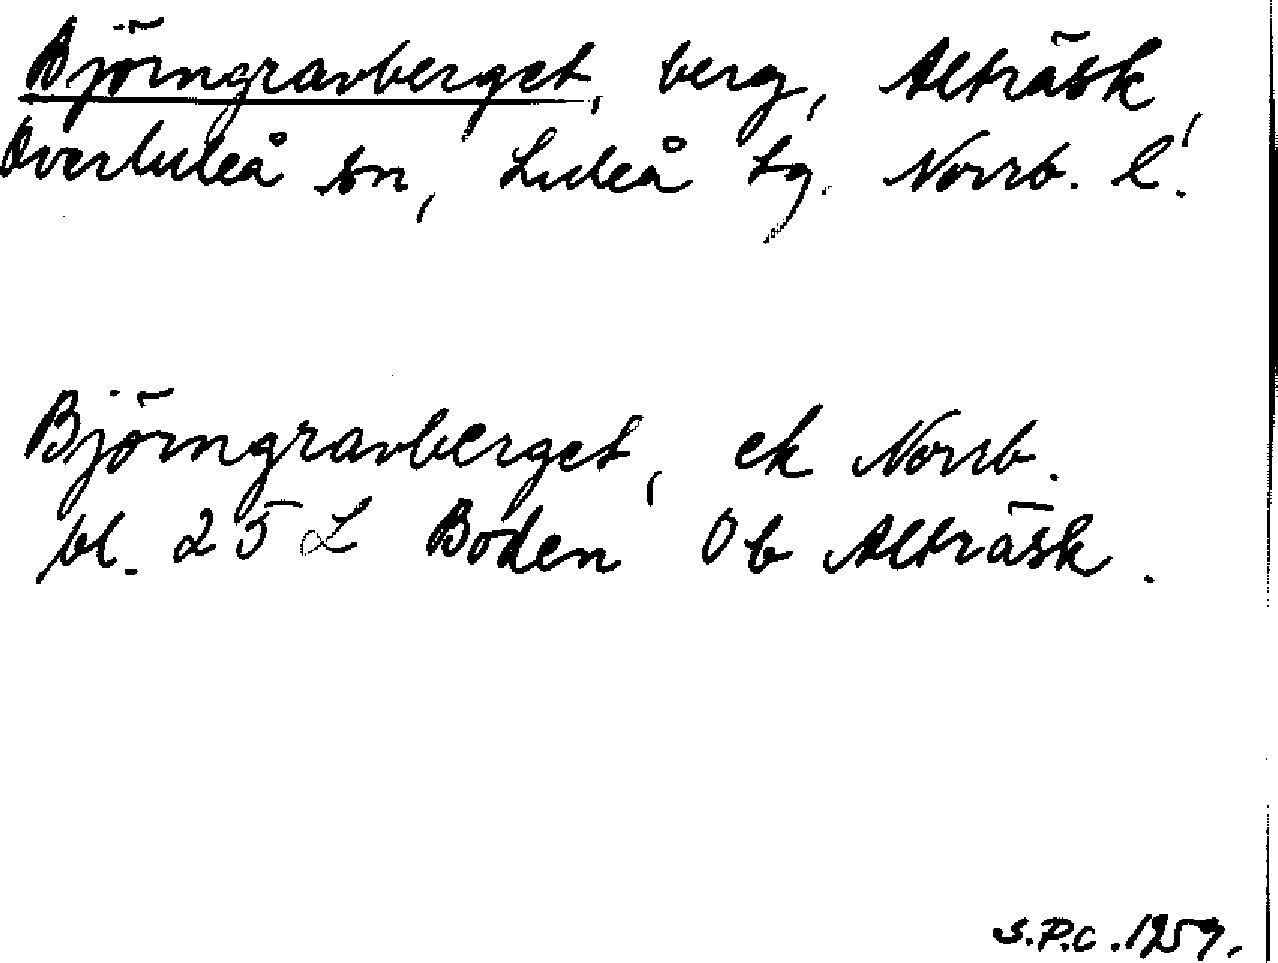 Björngravberget, berg, Alträsk,
Överluleå sn, Luleå tg. Norrb. l.
Björngravberget, ek Norrb.
bl. 25 L Boden Ob Alträsk.
S.P.C. 1957.